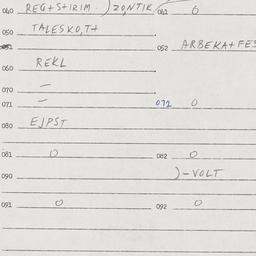 040 REG+S+IRIM. )ZONTIK 041 0
050 TALESKO,T+
051 052 ARBEKA+FES
060 REKL
070 –
071 – 072 0
080 EJPST
081 0 082 0
090 )-VOLT
091 0 092 0